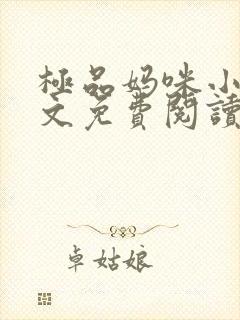 極品妈咪小
文免費閱讀
卓姑娘